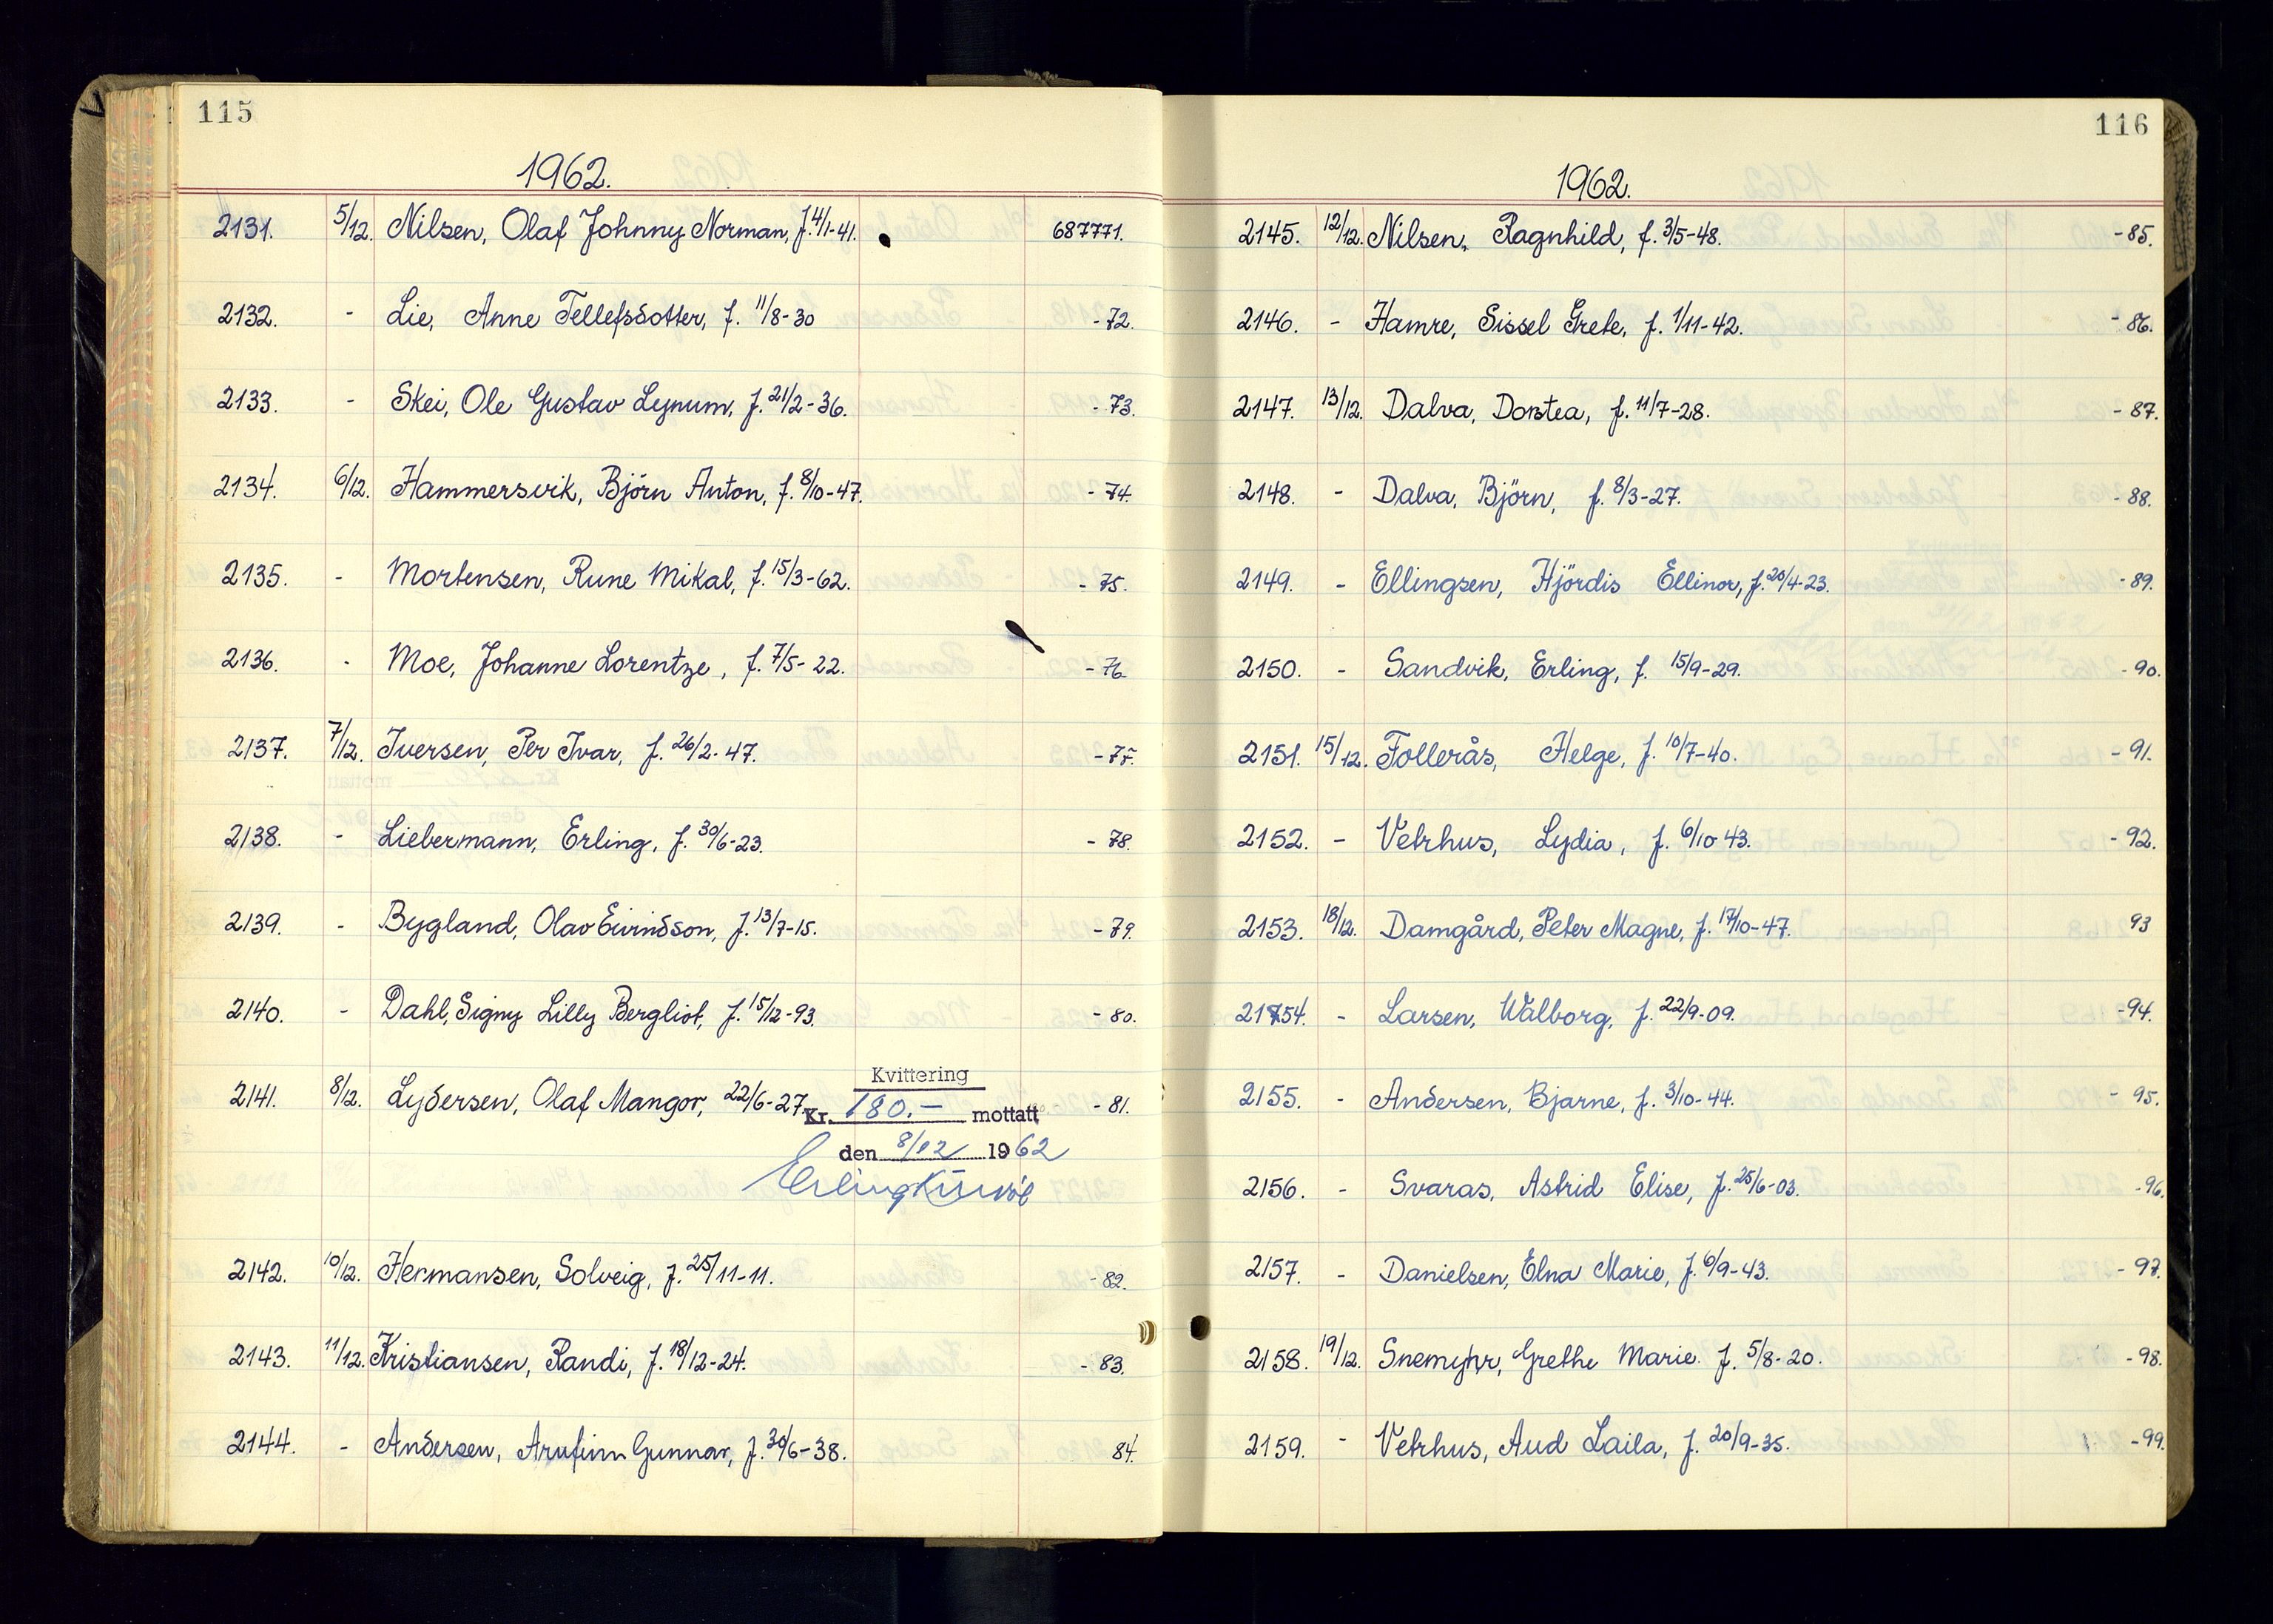 115
1962.
2131. 5/12. Nilsen, Olaf Johnny Norman, f. 4/1-41. 687771.
2132. - Lie, Anne Tellefsdotter, f. 11/8-30 -72.
2133. - Skei, Ole Gustav Lynum, f. 21/2-36. -73.
2134. 6/12. Hammersvik, Björn Anton, f. 8/10-47. -74.
2135. - Mortensen, Rune Mikal, f. 15/3-62. -75.
2136. - Moe, Johanne Lorentze, f. 7/5-22. -76.
2137. 7/12. Iversen, Per Ivar, f. 26/2-47. -77.
2138. - Liebermann, Erling, f. 30/6-23. -78.
2139. - Bygland, Olav Eivindsson, f. 13/7-15. -79.
2140. - Dahl, Signy Lilly Bergliot, f. 15/12-93. -80.
2141. 8/12. Lydersen, Olaf Mangor, 22/6-27. -81.
Kvittering
Kr. 180.- mottatt
den 8/12 1962
2142. 10/12. Hermansen, Solveig, f. 25/11-11. -82.
2143. 11/12. Kristiansen, Randi, f. 18/12-24. -83.
2144. - Andersen, Arnfinn Gunnar, f. 30/6-38. 84.
116
1962.
2145. 12/12. Nilsen, Ragnhild, f. 3/5-48. -85.
2146. - Hamre, Sissel Grete, f. 1/11-42. -86.
2147. 13/12. Dalva, Dortea, f. 11/7-28. -87.
2148. - Dalva, Björn, f. 8/3-27. -88.
2149. - Ellingsen, Hjördis Ellinor, f. 20/4-23. -89.
2150. - Sandvik, Erling, f. 15/9-29. -90.
2151. 15/12. Follerås, Helge, f. 10/7-40. -91.
2152. - Vetrhus, Lydia, f. 6/10-43. -92.
2153. 18/12. Damgård, Peter Magne, f. 17/10-47. 93
2154. - Larsen, Walborg, f. 22/9-09. -94.
2155. - Andersen, Bjarne, f. 3/10-44. -95.
2156. - Svaras, Astrid Elise, f. 25/6-03. -96.
2157. - Danielsen, Elna Marie, f. 6/9-43. -97.
2158. 19/12. Snemyhr, Grethe Marie. f. 5/8-20. -98.
2159. - Vetrhus, Aud Laila, f. 20/9-35. -99.